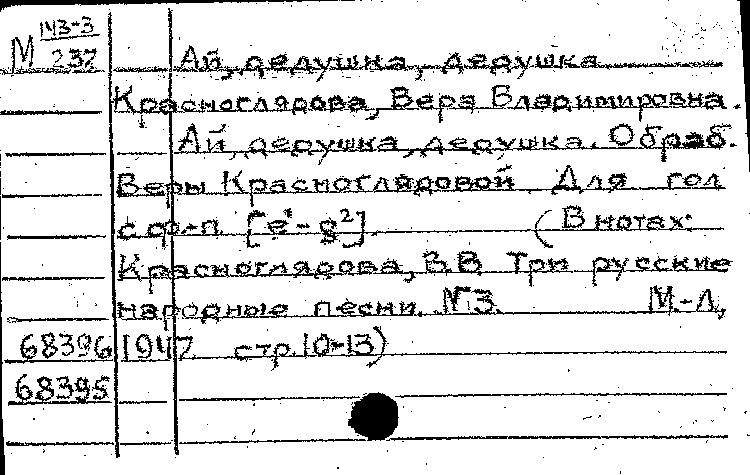 М 143-3
237 Ай, дедушка, дедушка
Красноглядова, Вера Владимировна.
Ай, дедушка, дедушка. Обраб.
Веры Красноглядовой Для гол
с ф.-п [e¹-g²]. (В нотах:
Красноглядова, В.В Три русские
народные песни. №3. М.-Л,
68396 1947 стр.10-13)
68395